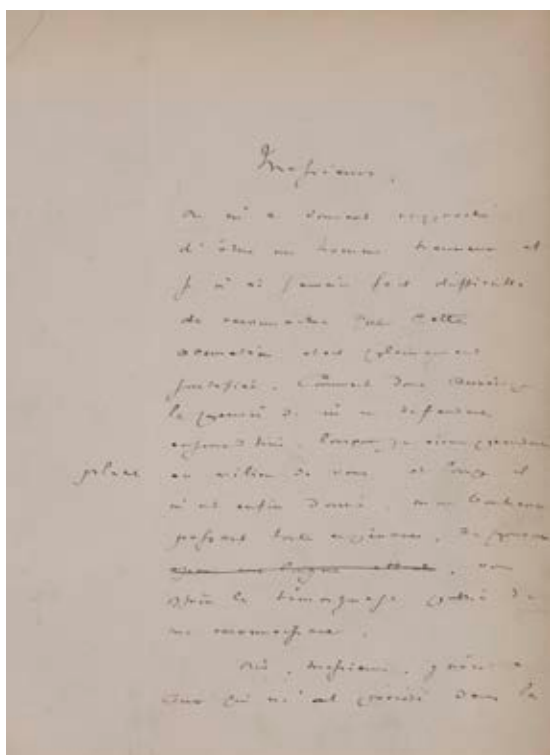 Messieurs,
On m'a souvent reproché
d'être un homme heureux et
je n'ai jamais fait difficulté
de reconnaître que cette
accusation était pleinement
justifiée. Comment donc aurais-je
la pensée de m'en défendre
aujourd'hui, lorsque je viens prendre
place au milieu de vous et lorsqu'il
m'est enfin donné, mon bonheur
passant toute espérance, de pouvoir
après une longue attente, vous
offrir le témoignage public de
ma reconnaissance.
Oui, Messieurs, grâce à
ceux qui m'ont précédé dans la